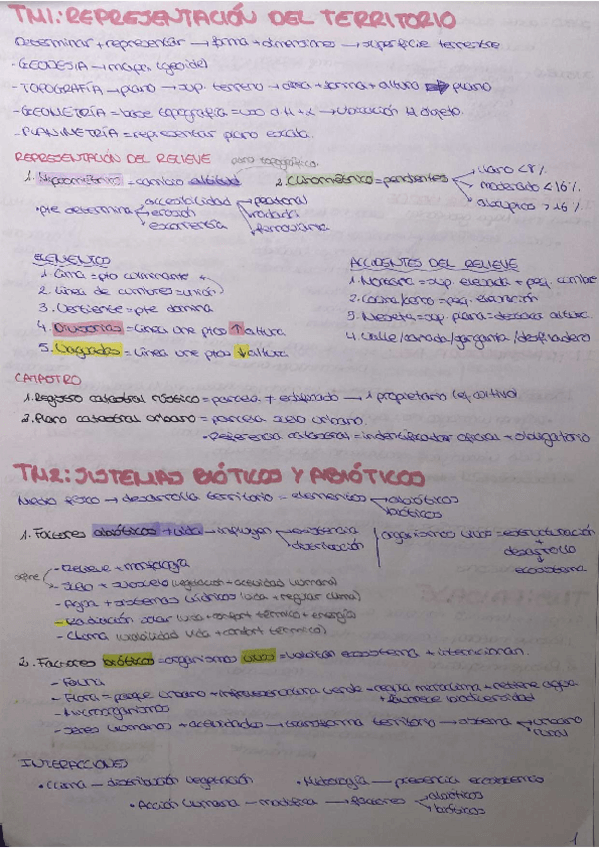 TM1: REPRESENTACIÓN DEL TERRITORIO
Determinar + representar → forma + dimensiones → superficie terrestre
- GEODESIA → mapa (geoide)
- TOPOGRAFÍA → plano → sup. terreno → forma + altura → plano
- GEOMETRÍA = base topografía = uso → ubicación objeto.
- PLANIMETRÍA = representar plano escala.
REPRESENTACIÓN DEL RELIEVE
plano topográfico.
1. Hipsométrico = cambio altitud
2. Clinométrico = pendientes
claro < 8%
moderado < 16%
abrupto > 16%
• pte determina
accesibilidad
erosión
escorrentía
peatonal
rodada
ferroviaria
ELEMENTOS
1. Cima = pto culminante
2. Línea de cumbres = unión
3. Vertiente = pte domina
4. Divisorias = línea une ptos ↑ altura
5. Vaguadas = línea une ptos ↓ altura
ACCIDENTES DEL RELIEVE
1. Montaña = sup. elevada + peq. cumbre
2. Colina/cerro = peq. elevación
3. Meseta = sup. plana = destacar altura
4. Valle/cañada/garganta/desfiladero
CATASTRO
1. Registro catastral rústico = parcela + edificado → 1 propietario (ej. cultivo)
2. Plano catastral urbano = parcela suelo urbano.
• Referencia catastral = indentificador oficial + obligatorio
TM2: SISTEMAS BIÓTICOS Y ABIÓTICOS
Medio físico → desarrolla territorio = elementos
abióticos
bióticos
1. Factores abióticos + vida → influyen
existencia
distribución
organismos vivos = estructuración
+
desarrollo
+
ecosistema
define
- Relieve + morfología
- Suelo + subsuelo (vegetación + actividad humana)
- Agua + sistemas hídricos (vida + regular clima)
- Radiación solar (vida + confort térmico + energía)
- Clima (viabilidad vida + confort térmico)
2. Factores bióticos = organismos vivos = habitan ecosistema + interaccionan.
- Fauna
- Flora = parque urbano + infraestructura verde = regula microclima + retiene agua
+ favorece biodiversidad
- Microorganismos
- Seres humanos + actividades → transforma territorio → sistema
urbano
rural
INTERACCIONES
• Clima — distribución vegetación
• Hidrología — presencia ecosistemas
• Acción humana — modifica → factores
abióticos
bióticos
1